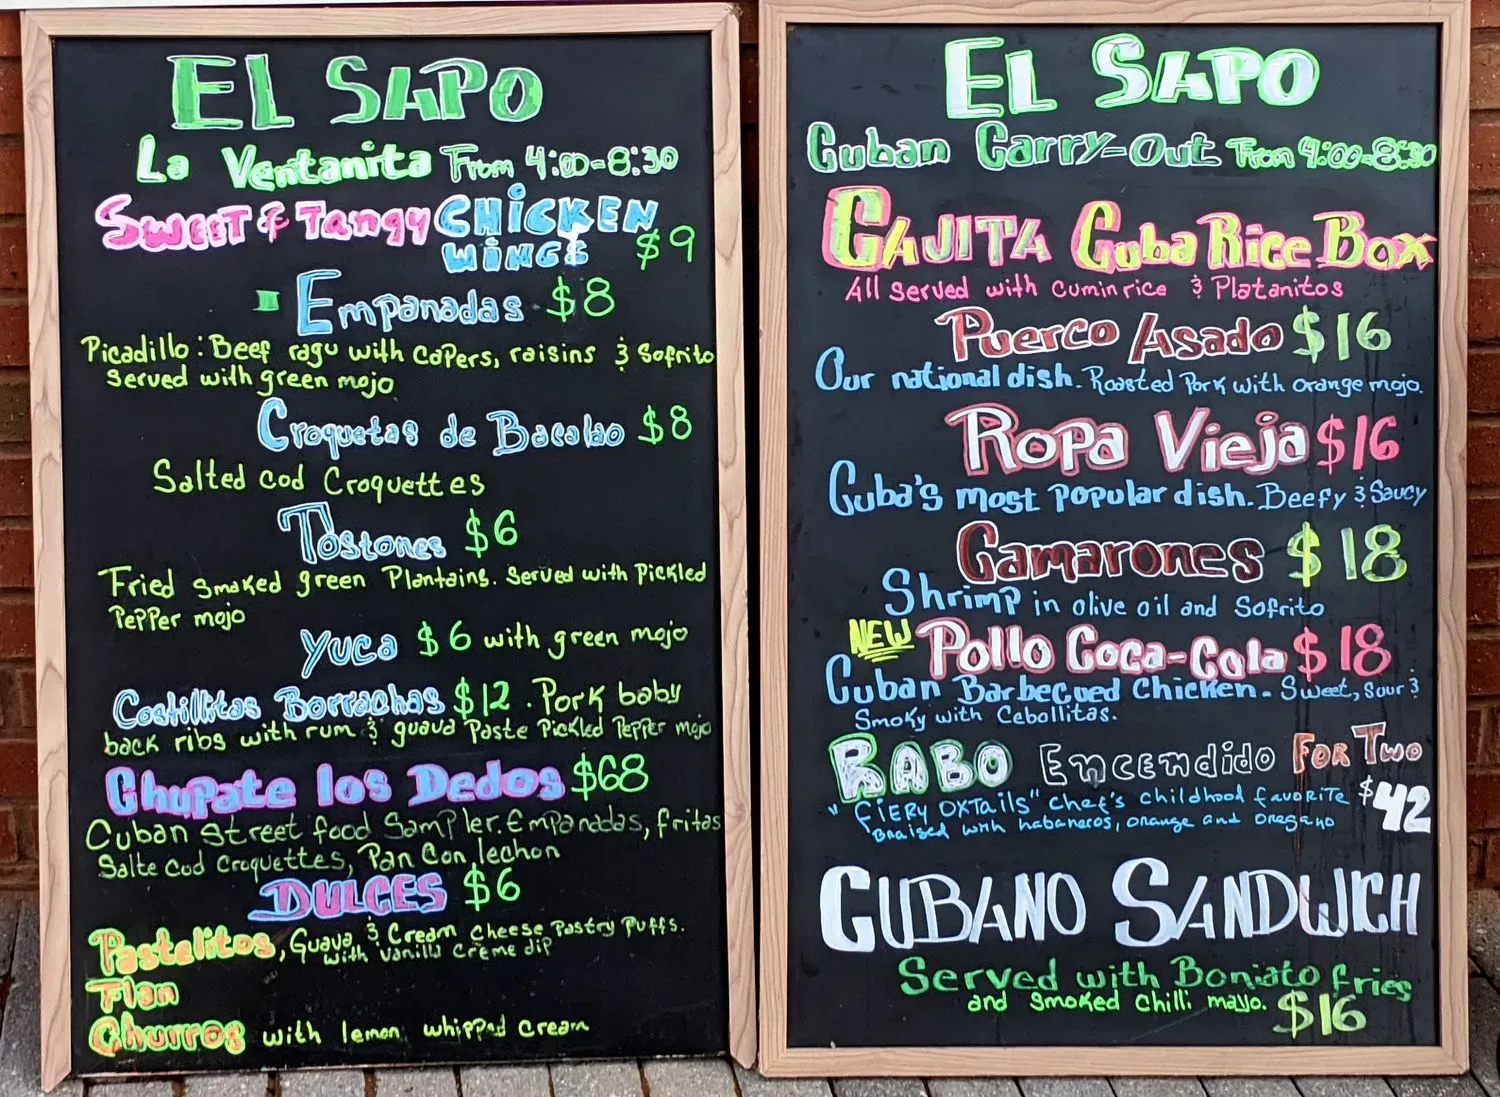 EL SAPO
La Ventanita From 4:00-8:30
SWEET & Tangy CHICKEN
WINGS $9
Empanadas $8
Picadillo: Beef ragu with capers, raisins & Sofrito
served with green mojo
Croquetas de Bacalao $8
Salted cod Croquettes
Tostones $6
Fried smoked green Plantains. Served with Pickled
Pepper mojo
Yuca $6 with green mojo
Costillitas Borrachas $12. Pork baby
back ribs with rum & guava Paste Pickled Pepper mojo
Chupate los Dedos $68
Cuban Street food Sampler. Empanadas, fritas
Salte cod Croquettes, Pan Con lechon
DULCES $6
Pastelitos, Guava & Cream cheese Pastry Puffs.
with vanilla Crème dip
Flan
Churros with lemon whipped cream
EL SAPO
Cuban Carry-Out From 4:00-8:30
CAJITA Cuba Rice Box
All served with cumin rice & Platanitos
Puerco Asado $16
Our national dish. Roasted Pork with orange mojo.
Ropa Vieja $16
Cuba's most popular dish. Beefy & Saucy
Camarones $18
Shrimp in olive oil and Sofrito
NEW Pollo Coca-Cola $18
Cuban Barbecued Chicken. Sweet, Sour &
Smoky with Cebollitas.
RABO Encendido For Two
"FIERY OXTAILS" Chef's childhood favorite $42
Braised with habaneros, orange and oregano
CUBANO SANDWICH
Served with Boniato fries
and smoked chilli mayo. $16